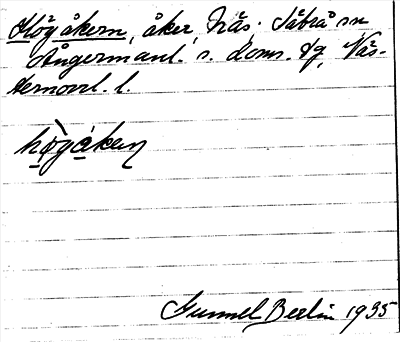 Högåkern, åker, Näs. Säbrå sn
Ångermanl. s. doms. dg, Väs-
ternorrl. l.
hò̤gåkeṇ
Gunnel Berlin 1935